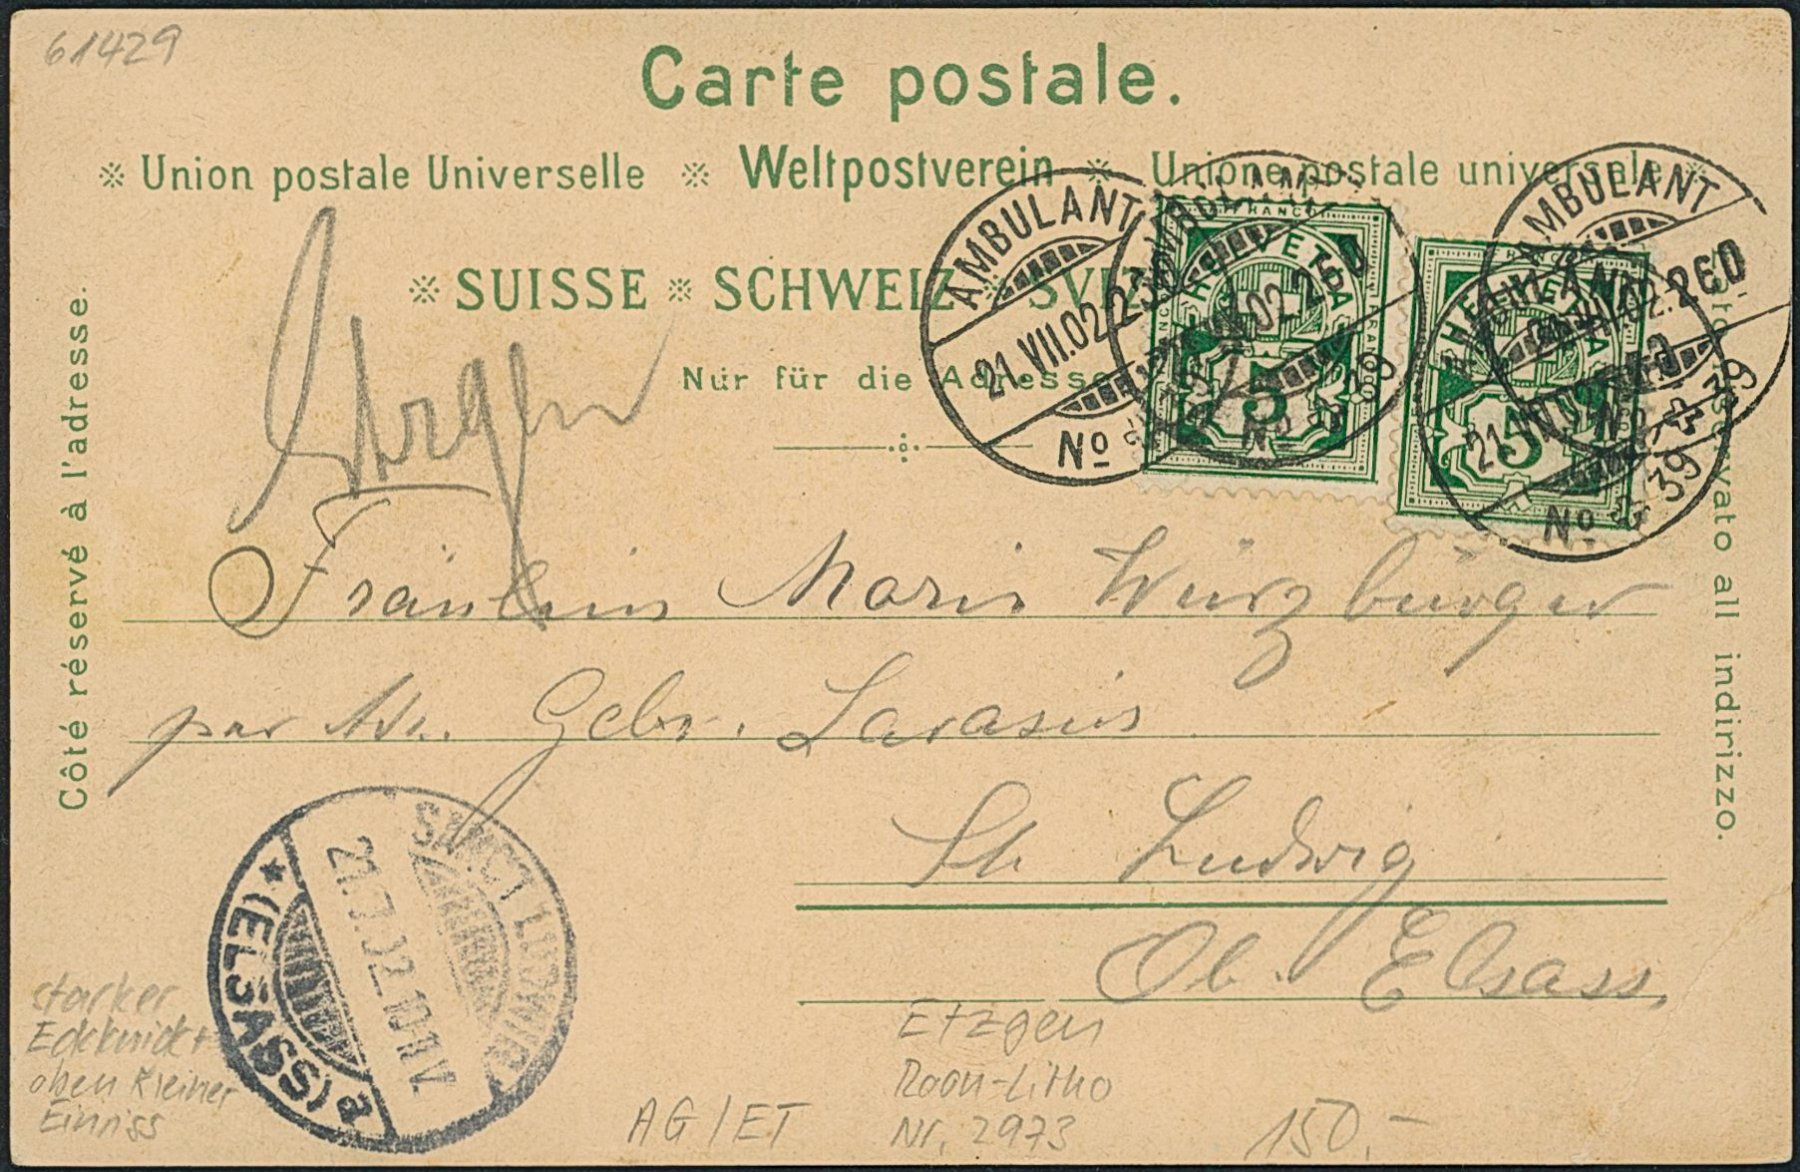 61429
Carte postale.
※ Union postale Universelle ※ Weltpostverein ※ Unione postale universale ※
※ SUISSE ※ SCHWEIZ ※
Nur für die Adresse
Côté réservé à l'adresse.
all indirizzo.
AMBULANT
21.VII.02
No
FRANCO
HELVETIA
5
AMBULANT
No 39
FRANCO
HELVETIA
5
21.VII.02
No 39
Fräulein Marie Würzburger
per Adr. Gebr. Sarasin
St Ludwig
Ob. Elsass.
SANCT LUDWIG
21.7.02.
* (ELSASS) a
starker
Eckknick
oben kleiner
Einriss
AG/ET
Etzgen
Roon-Litho
Nr. 2973
150.-